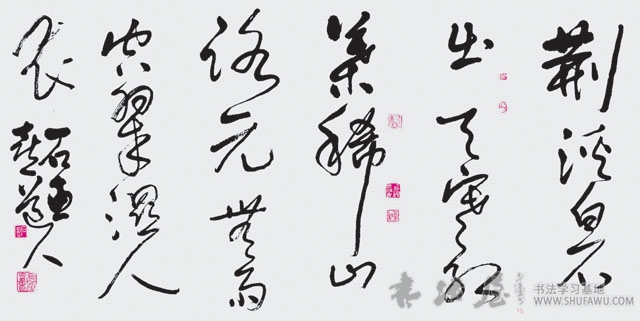 荊溪白石
出天寒紅
葉稀山
路元無雨
空翠濕人
衣
书法学习基地
WWW.SHUFAWU.COM